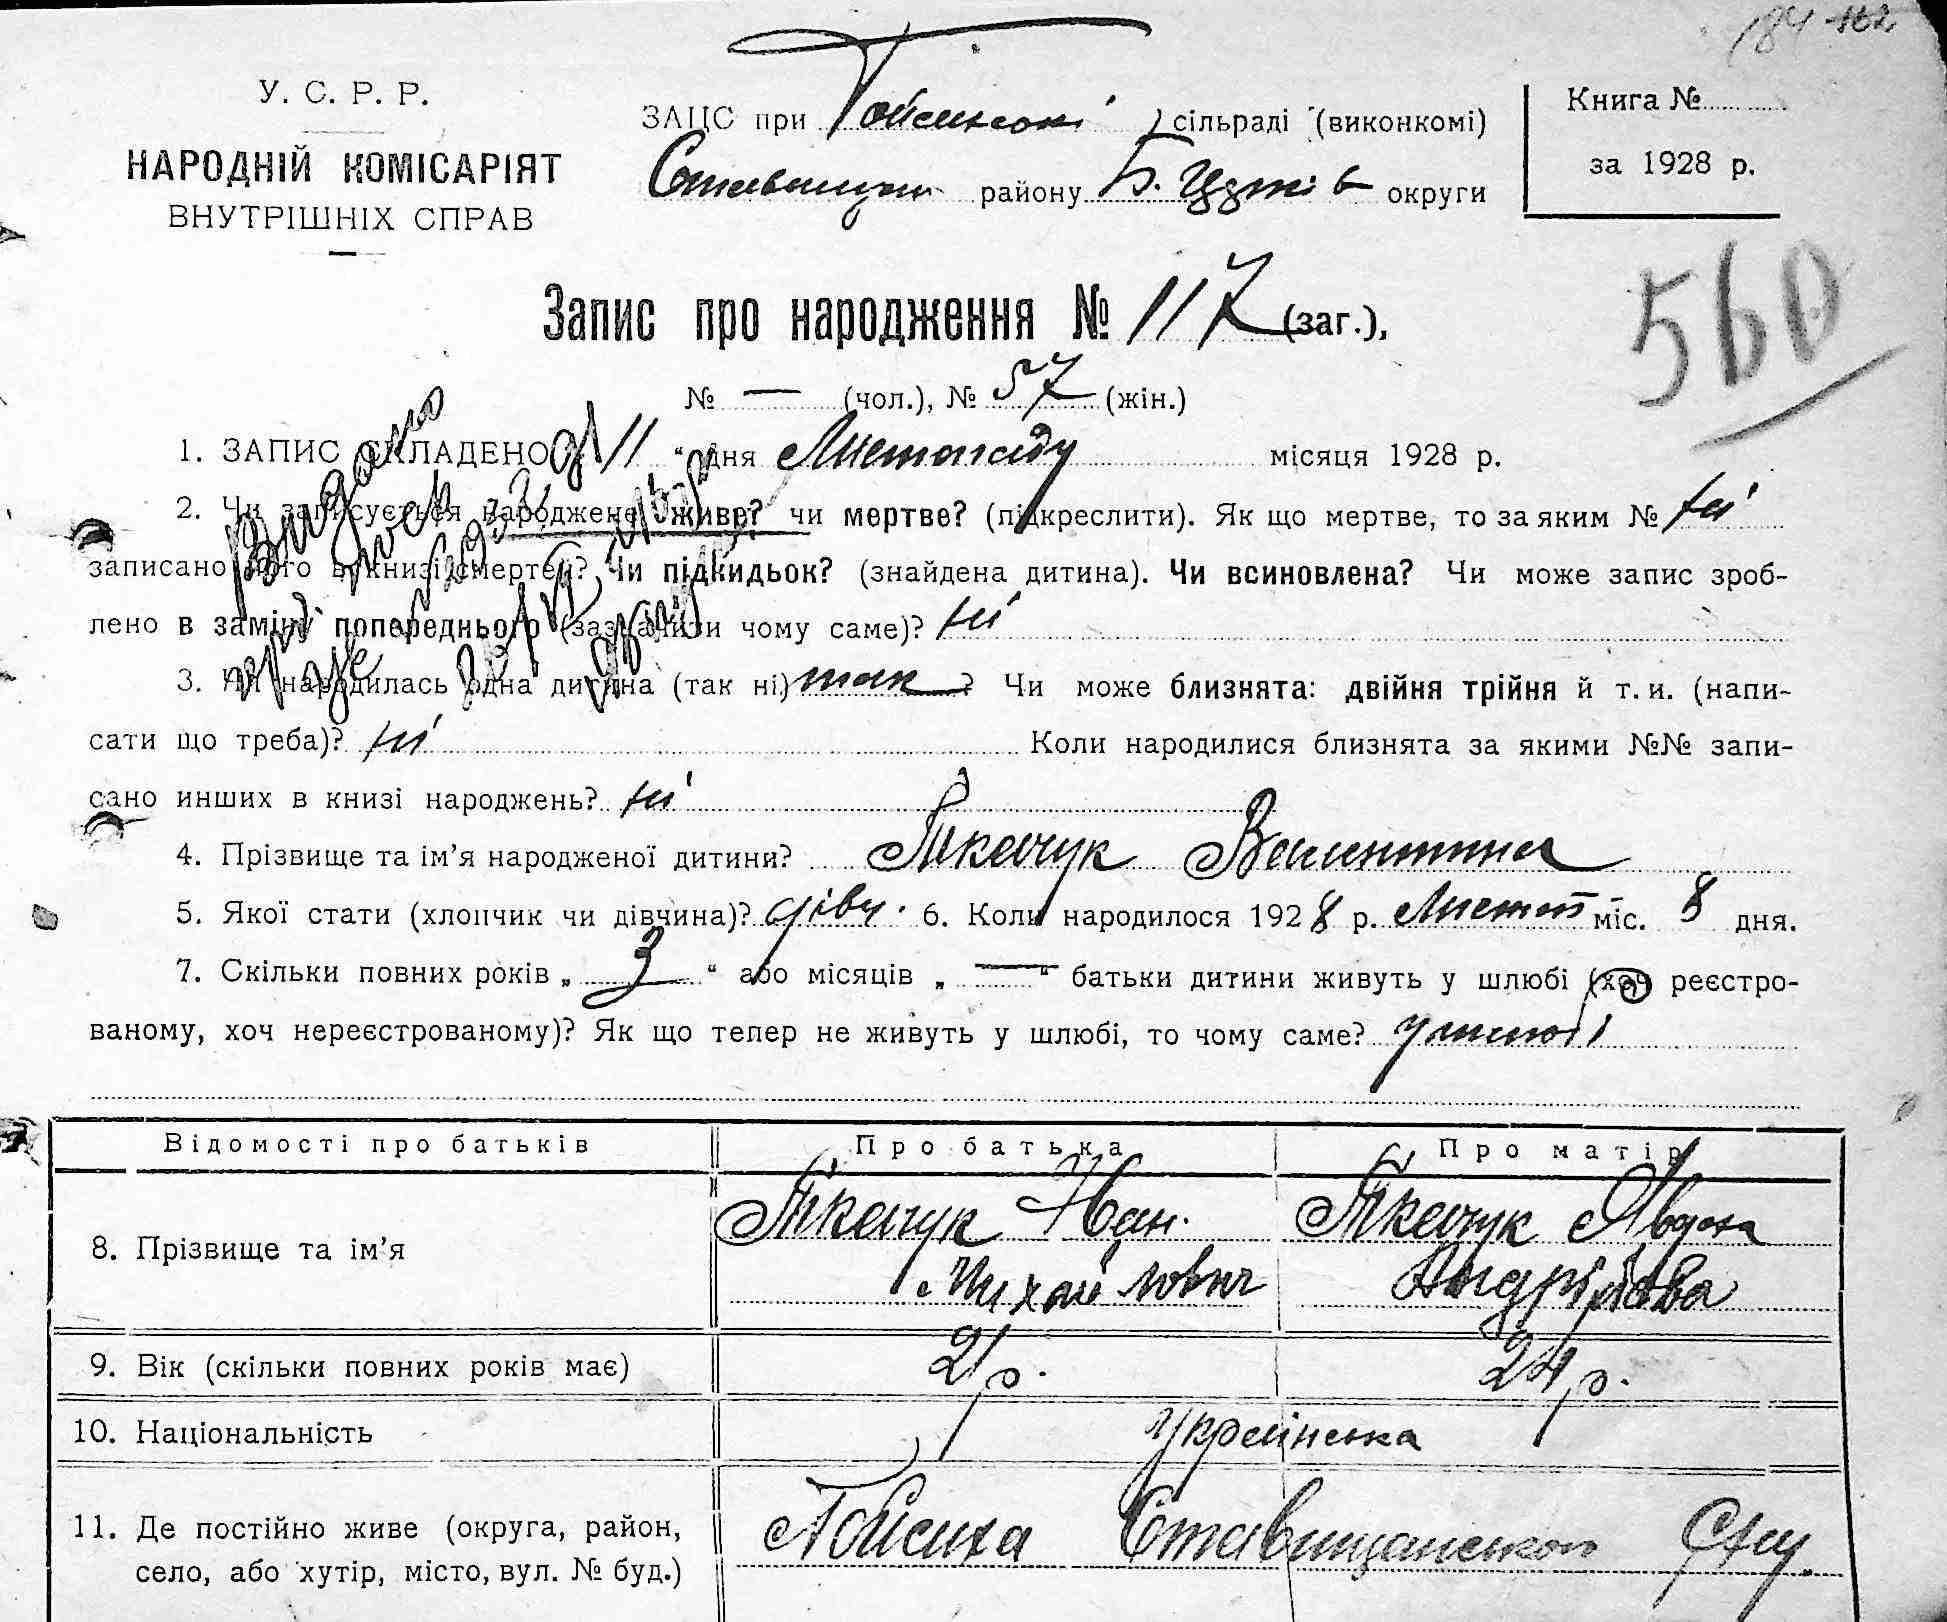 184 162
У. С. Р. Р.
НАРОДНІЙ КОМІСАРІЯТ
ВНУТРІШНІХ СПРАВ
ЗАЦС при сільраді (виконкомі)
району округи
Книга №
за 1928 р.
560
Запис про народження № 117 (заг.),
№ — (чол.), № 57 (жін.)
1. ЗАПИС СКЛАДЕНО „11“ дня Листопаду місяця 1928 р.
2. Чи записується народжене живе? чи мертве? (підкреслити). Як що мертве, то за яким № ні
записано його в книзі смертей? Чи підкидьок? (знайдена дитина). Чи всиновлена? Чи може запис зроб-
лено в заміну попереднього (зазначити чому саме)? ні
3. Чи народилась одна дитина (так ні) так ? Чи може близнята: двійня трійня й т. и. (напи-
сати що треба)? ні Коли народилися близнята за якими №№ запи-
сано инших в книзі народжень? ні
4. Прізвище та ім’я народженої дитини? Ткачук Валентина
5. Якої стати (хлопчик чи дівчина)? дівч. 6. Коли народилося 1928 р. Листоп міс. 8 дня.
7. Скільки повних років „ 3 “ або місяців „ — “ батьки дитини живуть у шлюбі (хоч реєстро-
ваному, хоч нереєстрованому)? Як що тепер не живуть у шлюбі, то чому саме?
Видано
Відомості про батьків Про батька Про матір
8. Прізвище та ім’я Ткачук Іван. Ткачук Явдоха
Михайлович Андріївна
9. Вік (скільки повних років має) 21 р. 24 р.
10. Національність Українська
11. Де постійно живе (округа, район,
село, або хутір, місто, вул. № буд.)